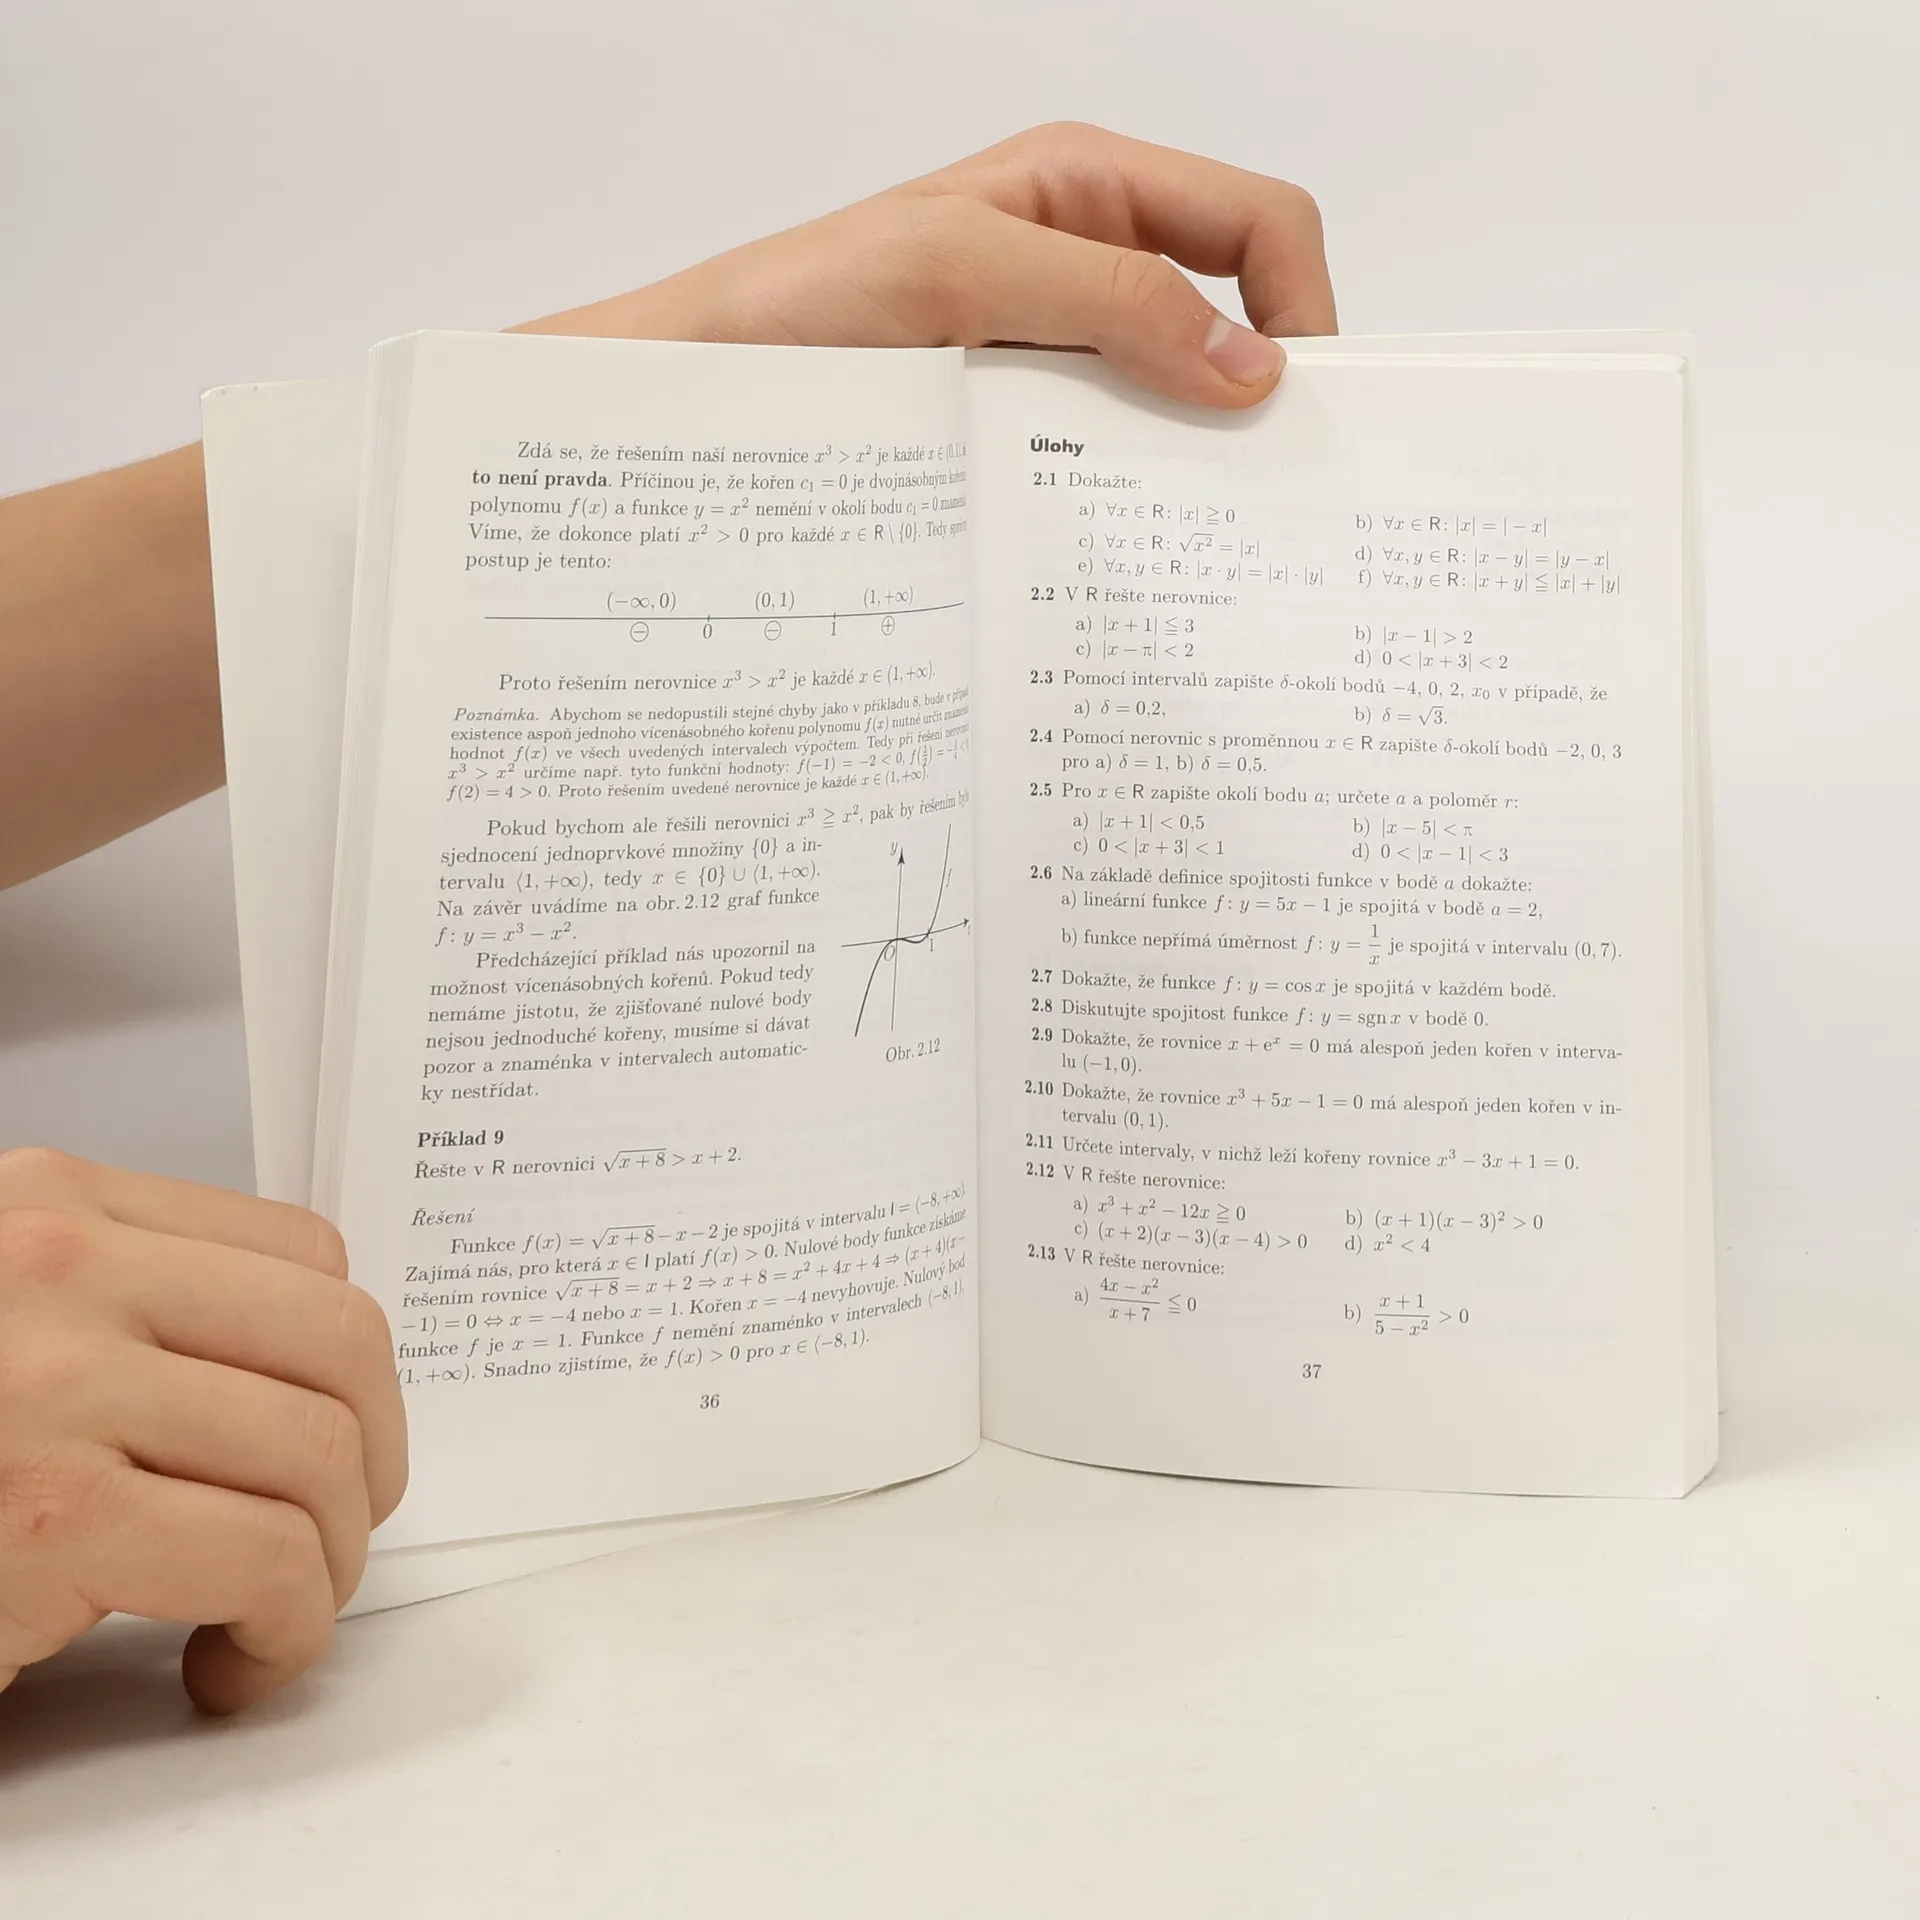 Zdá se, že řešením naší nerovnice x³ > x² je každé x ∈
to není pravda. Příčinou je, že kořen c₁ = 0 je dvojnásobným
polynomu f(x) a funkce y = x² nemění v okolí bodu c₁ = 0
Víme, že dokonce platí x² > 0 pro každé x ∈ R \ {0}. Tedy
postup je tento:
(−∞, 0) (0, 1) (1, +∞)
⊖ 0 ⊖ 1 ⊕
Proto řešením nerovnice x³ > x² je každé x ∈ (1, +∞).
Poznámka. Abychom se nedopustili stejné chyby jako v příkladu 8, bude v
existence aspoň jednoho vícenásobného kořenu polynomu f(x) nutné určit
hodnot f(x) ve všech uvedených intervalech výpočtem. Tedy při řešení
x³ > x² určíme např. tyto funkční hodnoty: f(−1) = −2 < 0, f(½) =
f(2) = 4 > 0. Proto řešením uvedené nerovnice je každé x ∈ (1, +∞).
Pokud bychom ale řešili nerovnici x³ ≧ x², pak by řešením
sjednocení jednoprvkové množiny {0} a in-
tervalu ⟨1, +∞), tedy x ∈ {0} ∪ ⟨1, +∞).
Na závěr uvádíme na obr. 2.12 graf funkce
f: y = x³ − x².
Předcházející příklad nás upozornil na
možnost vícenásobných kořenů. Pokud tedy
nemáme jistotu, že zjišťované nulové body
nejsou jednoduché kořeny, musíme si dávat
pozor a znaménka v intervalech automatic-
ky nestřídat.
y
f
O 1
Obr. 2.12
Příklad 9
Řešte v R nerovnici √(x + 8) > x + 2.
Řešení
Funkce f(x) = √(x + 8) − x − 2 je spojitá v intervalu I = ⟨−8, +∞).
Zajímá nás, pro která x ∈ I platí f(x) > 0. Nulové body funkce získáme
řešením rovnice √(x + 8) = x + 2 ⇒ x + 8 = x² + 4x + 4 ⇒ (x + 4)(x −
− 1) = 0 ⇔ x = −4 nebo x = 1. Kořen x = −4 nevyhovuje. Nulový bod
funkce f je x = 1. Funkce f nemění znaménko v intervalech ⟨−8, 1),
(1, +∞). Snadno zjistíme, že f(x) > 0 pro x ∈ ⟨−8, 1).
36
Úlohy
2.1 Dokažte:
a) ∀x ∈ R: |x| ≧ 0 b) ∀x ∈ R: |x| = |− x|
c) ∀x ∈ R: √x² = |x| d) ∀x, y ∈ R: |x − y| = |y − x|
e) ∀x, y ∈ R: |x · y| = |x| · |y| f) ∀x, y ∈ R: |x + y| ≦ |x| + |y|
2.2 V R řešte nerovnice:
a) |x + 1| ≦ 3 b) |x − 1| > 2
c) |x − π| < 2 d) 0 < |x + 3| < 2
2.3 Pomocí intervalů zapište δ-okolí bodů −4, 0, 2, x₀ v případě, že
a) δ = 0,2, b) δ = √3.
2.4 Pomocí nerovnic s proměnnou x ∈ R zapište δ-okolí bodů −2, 0, 3
pro a) δ = 1, b) δ = 0,5.
2.5 Pro x ∈ R zapište okolí bodu a; určete a a poloměr r:
a) |x + 1| < 0,5 b) |x − 5| < π
c) 0 < |x + 3| < 1 d) 0 < |x − 1| < 3
2.6 Na základě definice spojitosti funkce v bodě a dokažte:
a) lineární funkce f: y = 5x − 1 je spojitá v bodě a = 2,
b) funkce nepřímá úměrnost f: y = 1/x je spojitá v intervalu (0, 7).
2.7 Dokažte, že funkce f: y = cos x je spojitá v každém bodě.
2.8 Diskutujte spojitost funkce f: y = sgn x v bodě 0.
2.9 Dokažte, že rovnice x + eˣ = 0 má alespoň jeden kořen v interva-
lu (−1, 0).
2.10 Dokažte, že rovnice x³ + 5x − 1 = 0 má alespoň jeden kořen v in-
tervalu (0, 1).
2.11 Určete intervaly, v nichž leží kořeny rovnice x³ − 3x + 1 = 0.
2.12 V R řešte nerovnice:
a) x³ + x² − 12x ≧ 0 b) (x + 1)(x − 3)² > 0
c) (x + 2)(x − 3)(x − 4) > 0 d) x² < 4
2.13 V R řešte nerovnice:
a) (4x − x²)/(x + 7) ≦ 0 b) (x + 1)/(5 − x²) > 0
37